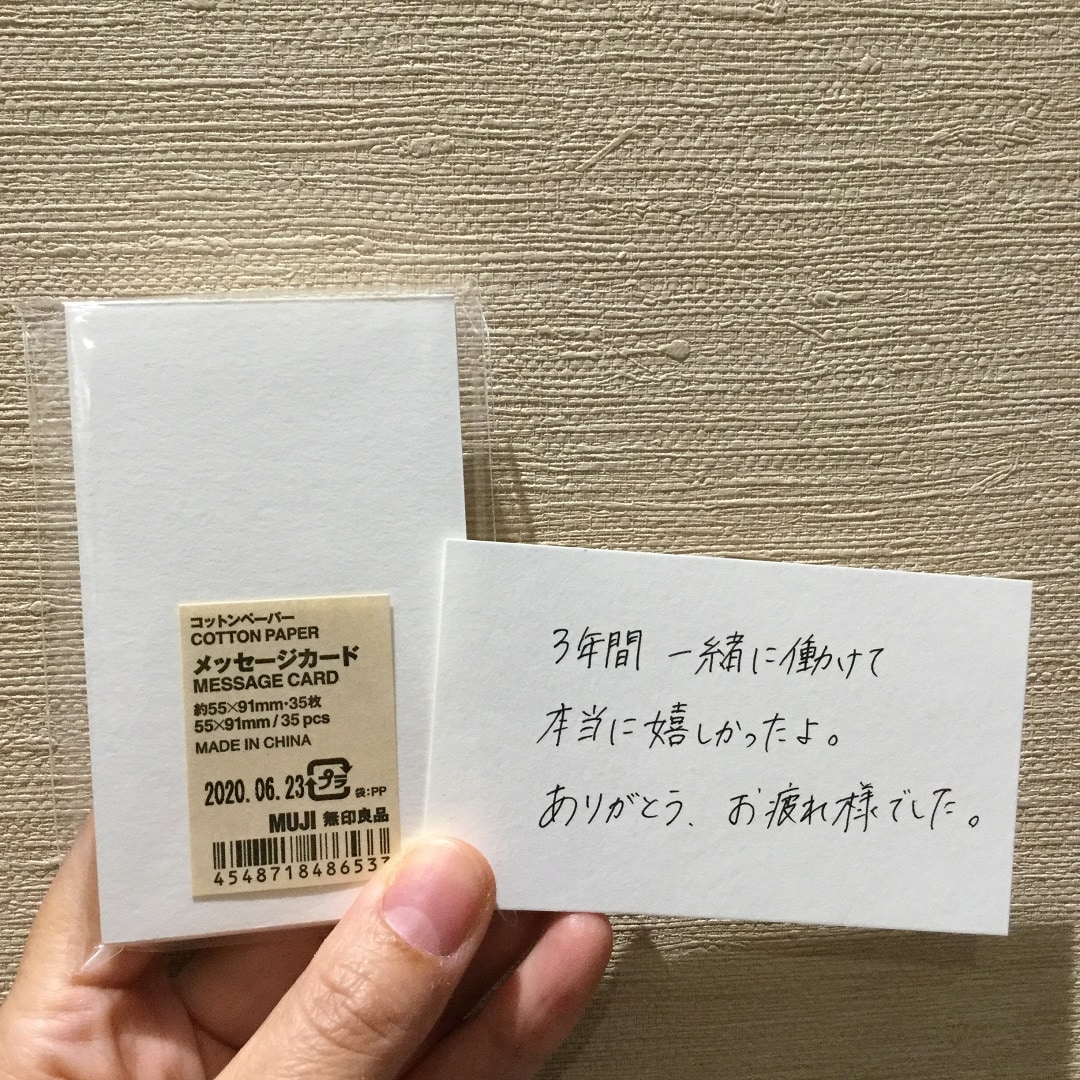 コットンペーパー
COTTON PAPER
メッセージカード
MESSAGE CARD
約55×91mm・35枚
55×91mm / 35 pcs
MADE IN CHINA
2020.06.23 プラ 袋:PP
MUJI 無印良品
4548718486533
3年間 一緒に働けて
本当に嬉しかったよ。
ありがとう、お疲れ様でした。